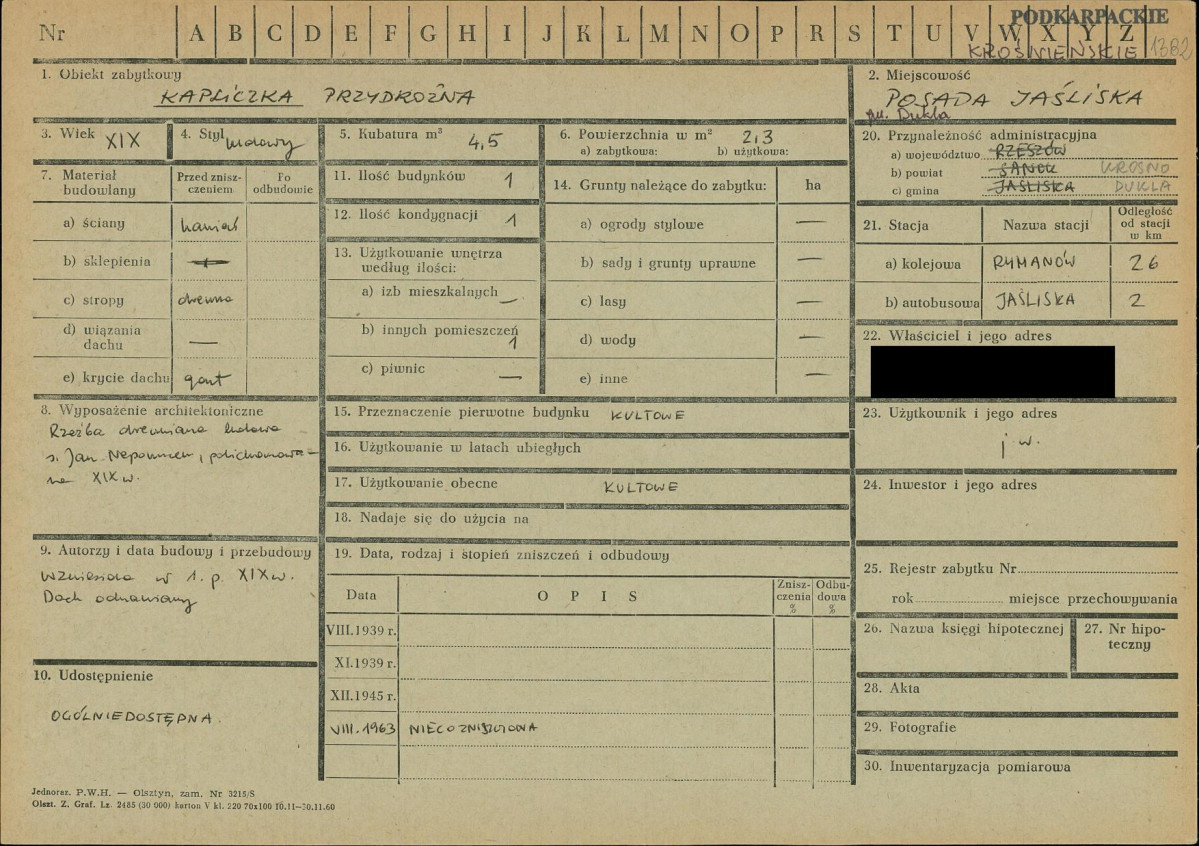 Nr A B C D E F G H I J K L M N O P R S T U V W X Y Z
PODKARPACKIE
KROŚNIEŃSKIE 1382
1. Obiekt zabytkowy
KAPLICZKA PRZYDROŻNA
2. Miejscowość
POSADA JAŚLISKA
gm. Dukla
3. Wiek XIX
4. Styl ludowy
5. Kubatura m³ 4,5
6. Powierzchnia w m² 2,3
a) zabytkowa: b) użytkowa:
7. Materiał budowlany
Przed zniszczeniem
Po odbudowie
a) ściany kamień
b) sklepienia —
c) stropy drewno
d) wiązania dachu —
e) krycie dachu gont
8. Wyposażenie architektoniczne
Rzeźba drewniana ludowa
s. Jan Nepomucen, polichromowa-
na XIX w.
9. Autorzy i data budowy i przebudowy
Wzniesiona w 1. p. XIX w.
Dach odnawiany
10. Udostępnienie
OGÓLNIEDOSTĘPNA.
11. Ilość budynków 1
12. Ilość kondygnacji 1
13. Użytkowanie wnętrza
według ilości:
a) izb mieszkalnych —
b) innych pomieszczeń 1
c) piwnic —
14. Grunty należące do zabytku: ha
a) ogrody stylowe —
b) sady i grunty uprawne —
c) lasy —
d) wody —
e) inne —
15. Przeznaczenie pierwotne budynku KULTOWE
16. Użytkowanie w latach ubiegłych
17. Użytkowanie obecne KULTOWE
18. Nadaje się do użycia na
19. Data, rodzaj i stopień zniszczeń i odbudowy
Data OPIS Zniszczenia % Odbudowa %
VIII.1939 r.
XI.1939 r.
XII.1945 r.
VIII.1963 NIECO ZNISZCZONA
20. Przynależność administracyjna
a) województwo RZESZÓW
b) powiat SANOK KROSNO
c) gmina JAŚLISKA DUKLA
21. Stacja Nazwa stacji Odległość od stacji w km
a) kolejowa RYMANÓW 26
b) autobusowa JAŚLISKA 2
22. Właściciel i jego adres
23. Użytkownik i jego adres
j w.
24. Inwestor i jego adres
25. Rejestr zabytku Nr
rok miejsce przechowywania
26. Nazwa księgi hipotecznej
27. Nr hipoteczny
28. Akta
29. Fotografie
30. Inwentaryzacja pomiarowa
Jednoraz. P.W.H. — Olsztyn, zam. Nr 3215/S
Olszt. Z. Graf. Lz. 2485 (30 000) karton V kl. 220 70x100 10.11—30.11.60